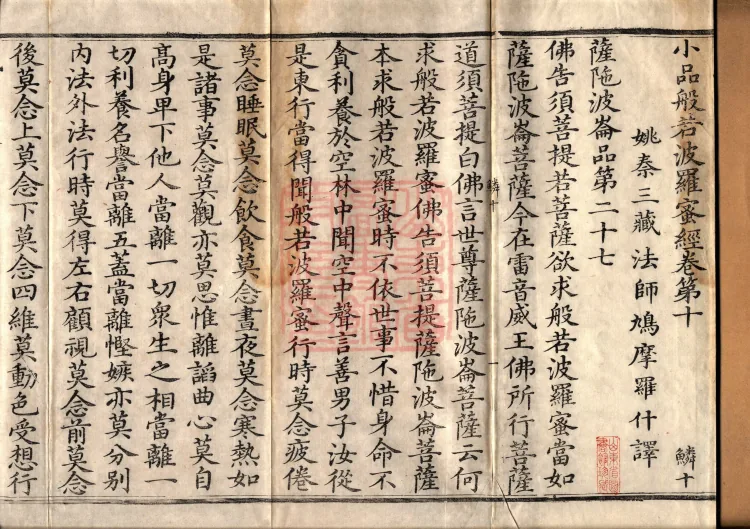 小品般若波羅蜜經卷第十
鱗十
姚秦三藏法師鳩摩羅什譯
薩陁波崙品第二十七
佛告須菩提若菩薩欲求般若波羅蜜當如
薩陁波崙菩薩今在雷音威王佛所行菩薩
鱗十
道須菩提白佛言世尊薩陁波崙菩薩云何
求般若波羅蜜佛告須菩提薩陁波崙菩薩
本求般若波羅蜜時不依世事不惜身命不
貪利養於空林中聞空中聲言善男子汝從
是東行當得聞般若波羅蜜行時莫念疲倦
莫念睡眠莫念飲食莫念晝夜莫念寒熱如
是諸事莫念莫觀亦莫思惟離諂曲心莫自
高身卑下他人當離一切衆生之相當離一
切利養名譽當離五蓋當離慳嫉亦莫分別
內法外法行時莫得左右顧視莫念前莫念
後莫念上莫念下莫念四維莫動色受想行